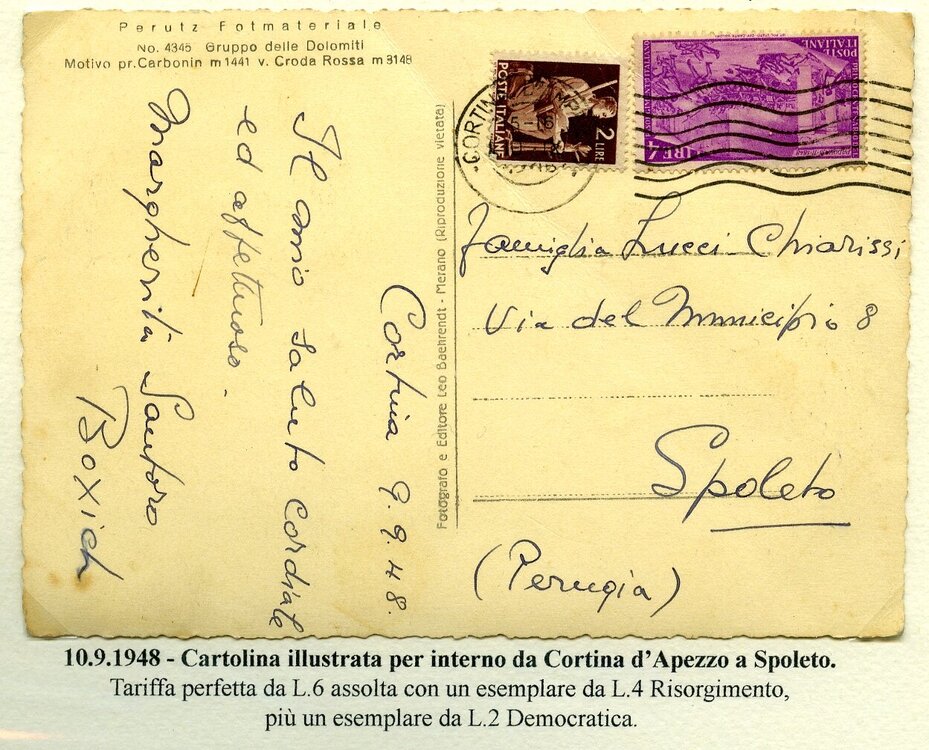 Perutz Fotmateriale
No. 4345 Gruppo delle Dolomiti
Motivo pr. Carbonin m 1441 v. Croda Rossa m 3148
Cortina 9.9.48.
Il mio saluto cordiale
ed affettuoso.
Margherita Santoro
Boxich
Fotografo e Editore Leo Baehrendt - Merano (Riproduzione vietata)
CORTINA
POSTE ITALIANE
2 LIRE
POSTE
ITALIANE
LIRE 4
Famiglia Lucci Chiarissi
Via del Municipio 8
Spoleto
(Perugia)
10.9.1948 - Cartolina illustrata per interno da Cortina d'Apezzo a Spoleto.
Tariffa perfetta da L.6 assolta con un esemplare da L.4 Risorgimento,
più un esemplare da L.2 Democratica.